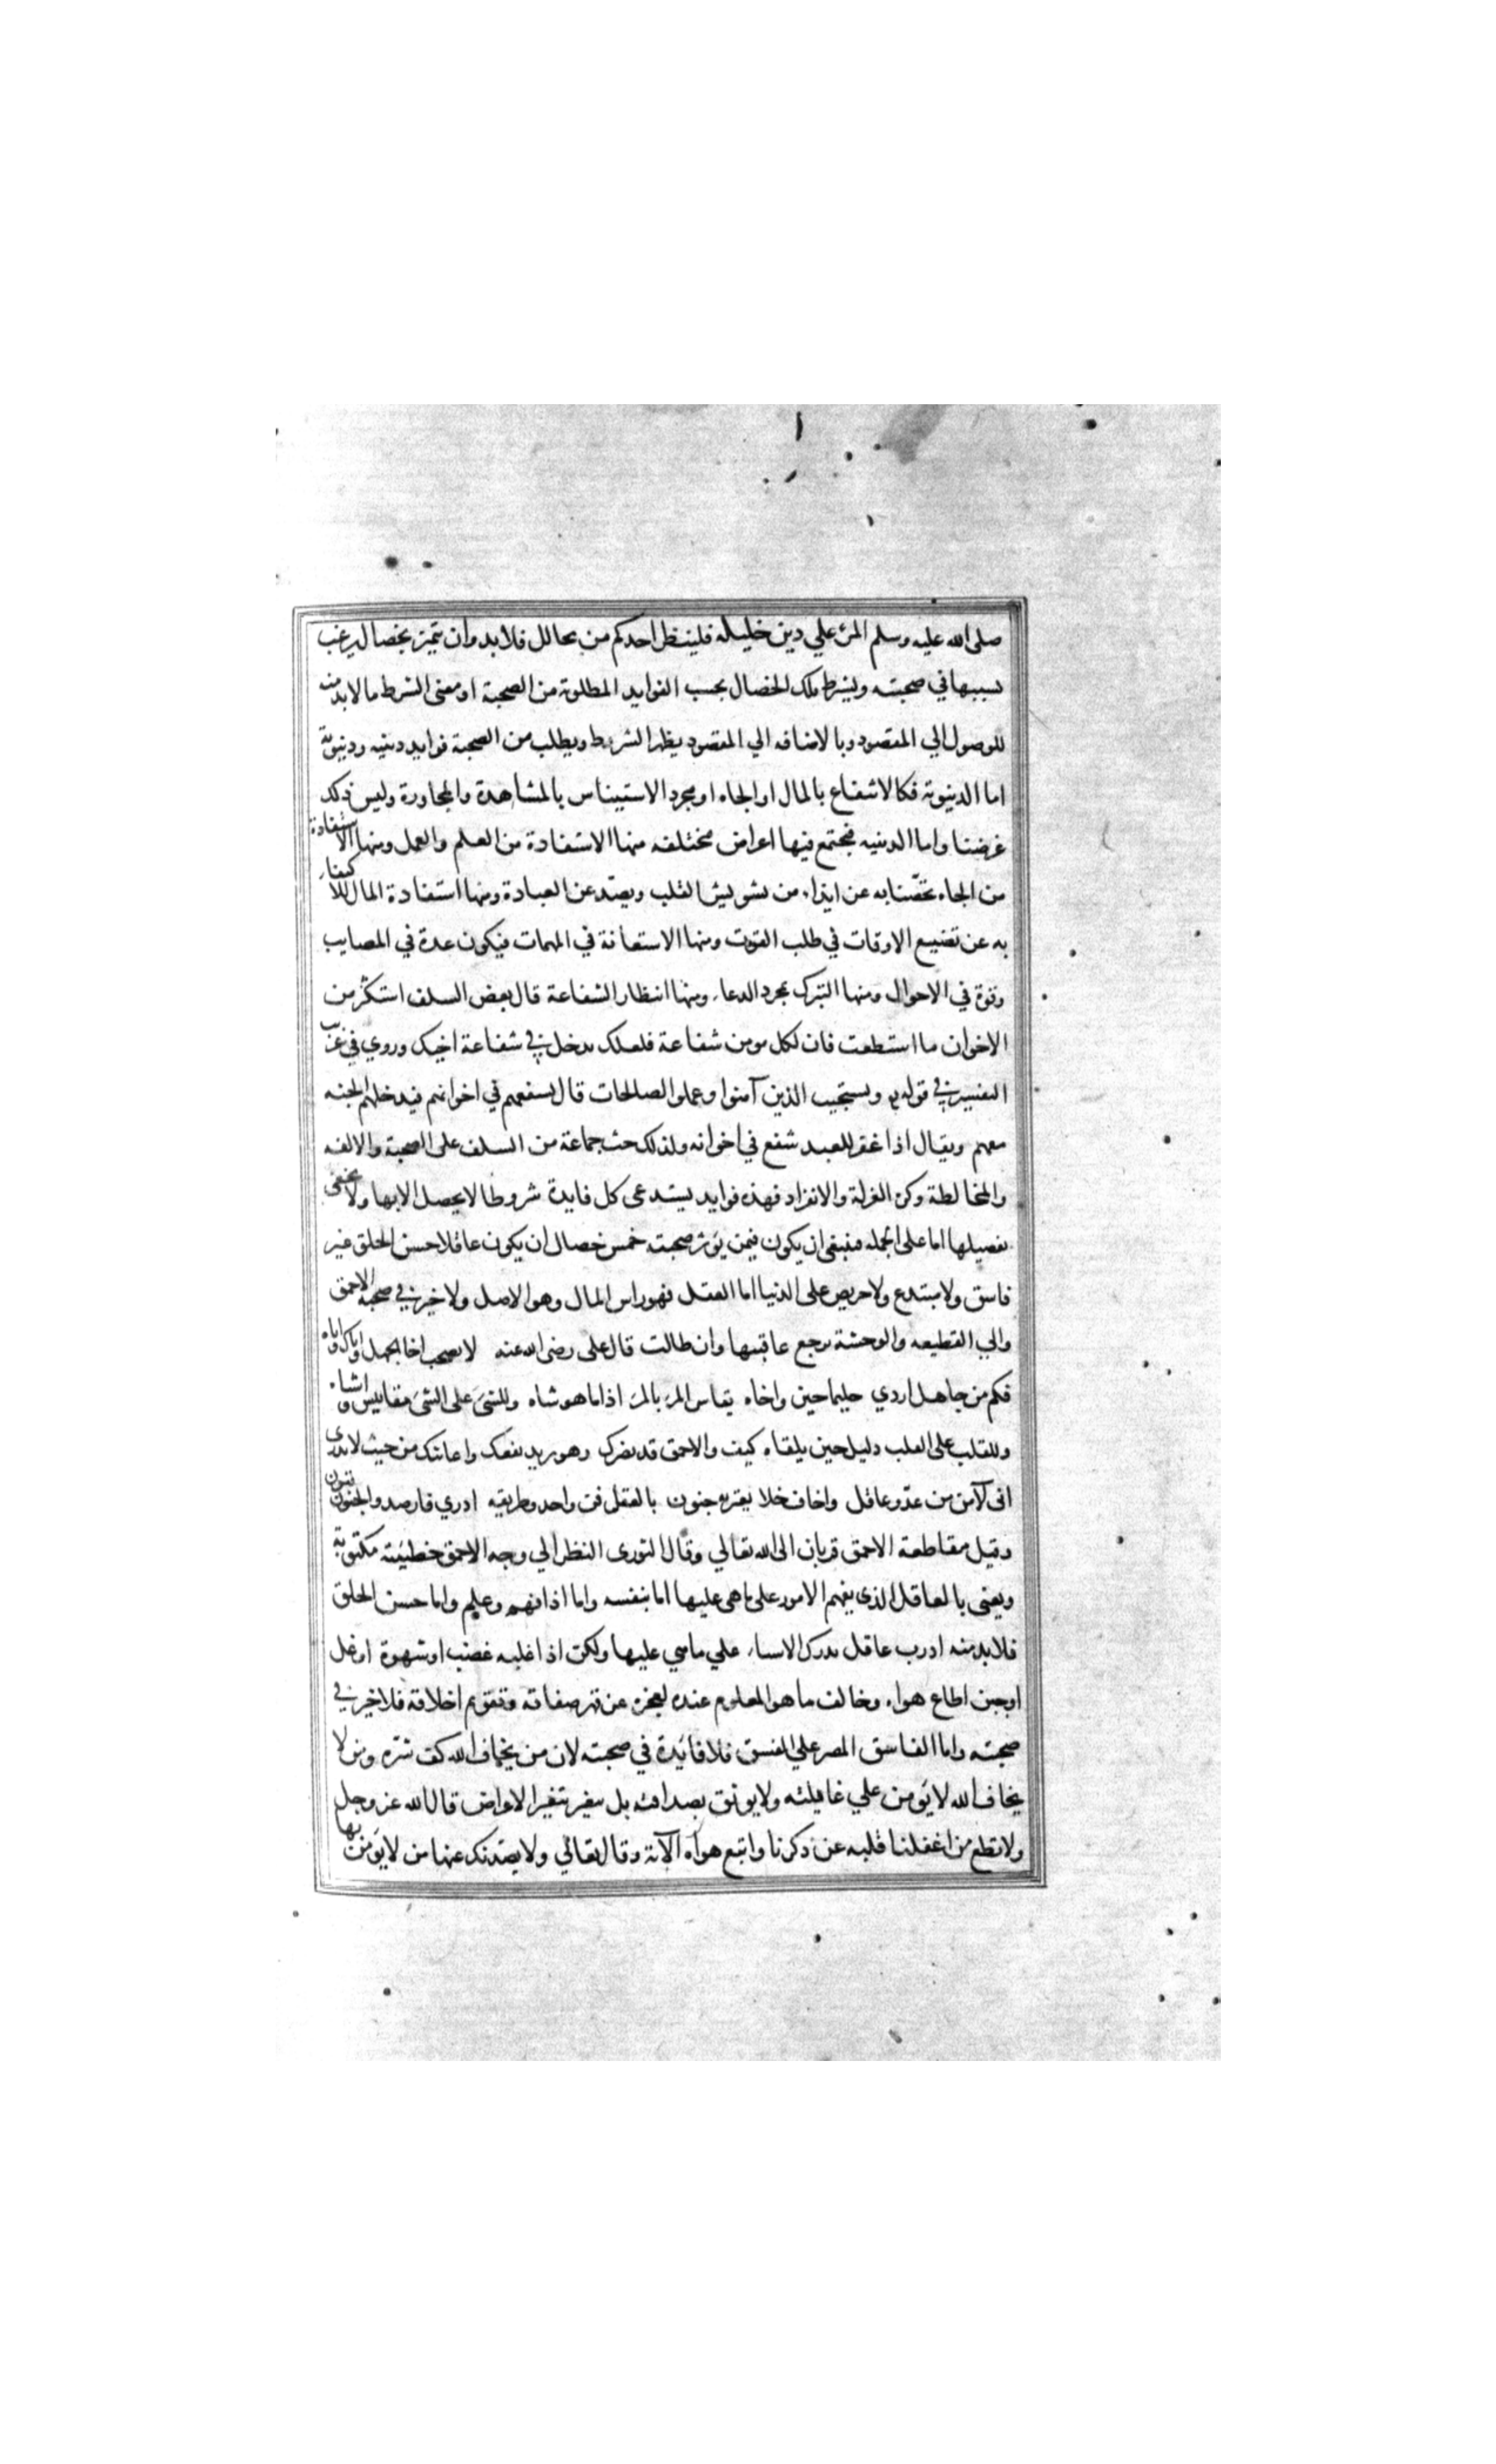 صلى الله عليه وسلم المرء علي دين خليله فلينظر احدكم من يخالل فلابد وان تتميز بخصال يرغب
بسببها في صحبته ويشترط تلك الخصال بحسب الفوايد المطلوبة من الصحبة او معنى الشرط ما لابد منه
للوصول الي المقصود وبالاضافه الي المقصود يظهر الشرط ويطلب من الصحبة فوايد دينيه ودنيوية
اما الدنيوية فكالانتفاع بالمال او الجاه او مجرد الاستيناس بالمشاهدة والمجاورة وليس ذلك
غرضنا واما الدينيه فيجتمع فيها اغراض مختلفه منها الاستفادة من العلم والعمل ومنها الاستفادة
من الجاه تحصّنا به عن ايذاء من يشوش القلب ويصدّ عن العبادة ومنها استفادة المال للاكتفاء
به عن تضييع الاوقات في طلب القوت ومنها الاستعانة في المهمات فيكون عدة في المصايب
وقوة في الاحوال ومنها التبرك بمجرد الدعاء ومنها انتظار الشفاعة قال بعض السلف استكثر من
الاخوان ما استطعت فان لكل مومن شفاعة فلعلك تدخل في شفاعة اخيك وروي في غريب
التفسير في قوله ويستجيب الذين آمنوا وعملوا الصالحات قال يشفعهم في اخوانهم فيدخلهم الجنه
معهم ويقال اذا غفر للعبد شفع في اخوانه ولذلك حث جماعة من السلف على الصحبة والالفه
والمخالطة وكره العزلة والانفراد فهذه فوايد يستدعى كل فايدة شروطا لا يحصل الا بها ولا يخفى
تفصيلها اما على الجمله فينبغي ان يكون فيمن يؤثر صحبته خمس خصال ان يكون عاقلا حسن الخلق غير
فاسق ولا مبتدع ولا حريص على الدنيا اما العقل فهو راس المال وهو الاصل ولا خير في صحبة الاحمق
والي القطيعه والوحشة يرجع عاقبتها وان طالت قال على رضى الله عنه لا تصحب اخا الجهل واياك واياه
فكم من جاهل اردي حليما حين واخاه يقاس المرء بالمرء اذا ما هو شاه وللشئ على الشئ مقاييس واشباه
وللقلب على القلب دليل حين يلقاه كيف والاحمق قد يضرك وهو يريد نفعك واعانتك من حيث لا يدرى
انى لآمن من عدّو عاقل واخاف خلا يعتريه جنون بالعقل فن واحد وطريقه ادري فارصد والجنون فنون
وقيل مقاطعة الاحمق قربان الى الله تعالي وقال الثورى النظر الي وجه الاحمق خطيئة مكتوبة
ويعنى بالعاقل الذى يفهم الامور على ما هي عليها اما بنفسه واما اذا فهم وعلم واما حسن الخلق
فلابد منه اذ رب عاقل يدرك الاشياء علي ما هي عليها ولكن اذا غلبه غضب او شهوة او بخل
او جبن اطاع هواه وخالف ما هو المعلوم عنده لعجزه عن قهر صفاته وتقويم اخلاقه فلا خير في
صحبته واما الفاسق المصر علي الفسق فلا فائدة في صحبته لان من يخاف الله كف شره ومن لا
يخاف الله لا يؤمن علي غائلته ولا يوثق بصداقته بل يتغير بتغير الاعراض قال الله عز وجل
ولا تطع من اغفلنا قلبه عن ذكرنا واتبع هواه الآية وقال تعالي ولا يصدنك عنها من لا يؤمن بها